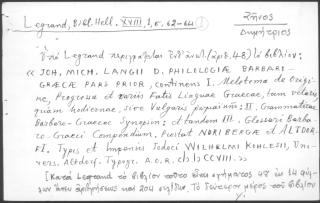 Legrand, Bibl. Hell. XVIII, 1, σ. 62-64
Ζῆνος
Δημήτριος
Ὑπὸ Legrand περιγράφεται (ἀριθ. 48) τὸ βιβλίον:
« JOH, MICH. LANGII D. PHILOLOGIÆ BARBARO-
GRÆCÆ PARS PRIOR, continens I. Meletema de Origi-
ne, Progressu et variis Fatis Linguae Graecae, tam veteris
quam hodiernae, sive Vulgaris ῥωμαικῆς: II. Grammaticae
Barbaro-Graecae Synopsin; et tandem III. Glossarii Barba-
ro-Graeci Compendium. Prostat NORIBERGÆ et ALTDOR-
FI. Typis et Impensis Jodoci WILHELMI KOHLESII, Uni-
vers. Altdorf. Typogr. A.O.R. CIƆ IƆ CCVIII.»
Κατὰ Legrand τὸ βιβλίον τοῦτο εἶναι σχήματος 4º ἐκ 14 φύλ-
λων ἄνευ ἀριθμήσεως καὶ 204 σελίδων. Τὸ δεύτερον μέρος τοῦ βιβλίου